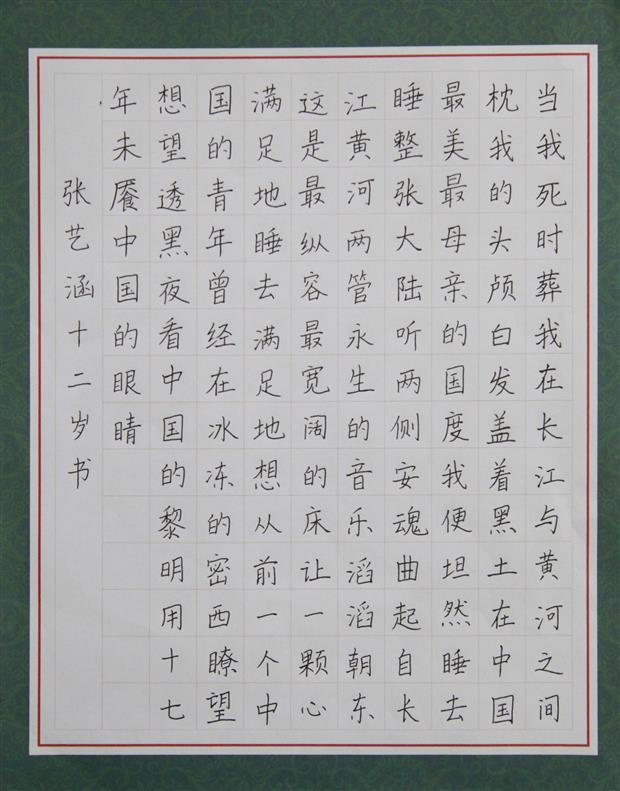 当我死时葬我在长江与黄河之间
枕我的头颅白发盖着黑土在中国
最美最母亲的国度我便坦然睡去
睡整张大陆听两侧安魂曲起自长
江黄河两管永生的音乐滔滔朝东
这是最纵容最宽阔的床让一颗心
满足地睡去满足地想从前一个中
国的青年曾经在冰冻的密西瞭望
想望透黑夜看中国的黎明用十七
年未餍中国的眼睛
张艺涵十二岁书